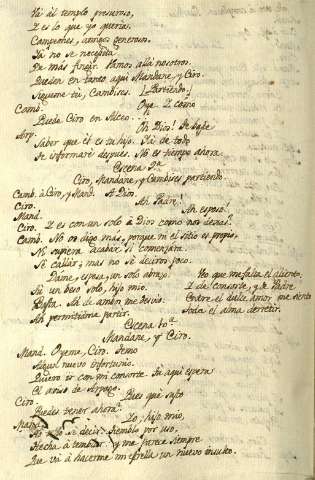 Va al templo presuroso,
Y es lo que yo queria.
Campeones, amigos generosos.
Ya no se necesita
De más fingir. Vamos allá nosotros.
Queden en tanto aqui Mandane, y Ciro.
Sigueme tú, Cambises. [Partiendo.]
Camb. Oye. Y como
Queda Ciro en
Arp. Oh Dios! Se sabe
Saber que él es tu hijo. Ya de todo
Se informará despues. No es tiempo ahora.
Escena 9a
Ciro, Mandane, y Cambises partiendo
Camb. á Ciro, y Mand. A Dios.
Ciro. Ah Padre!
Mand. Ah esposo!
Ciro. Y es con un solo á Dios como nos dexas?
Camb. No os digo más, porque ni el sitio es propio,
Ni supiera acabar si comenzára.
Sé callar; mas no sé deciros poco.
Dame, esposa, un solo abrazo. Ho que me falta el aliento,
Tú un beso solo, hijo mio. Y de consorte, y de Padre
Basta. Yá de ambos me desvio. Entre el dulce amor me siento
Ah permitidme partir. Toda el alma derretir.
Escena 10a
Mandane, y Ciro.
Mand. Oyeme, Ciro. Temo
Algun nuevo infortunio.
Quiero ir con mi consorte. Tu aqui espera
El aviso de Arpago.
Ciro. Pues qué susto
Puedes tener ahora?
Mand. Yo, hijo mio,
No lo sé decir: tiemblo por uso,
Hecha á temblar: y me parece siempre
Que vá á hacerme mi estrella un nuevo insulto.